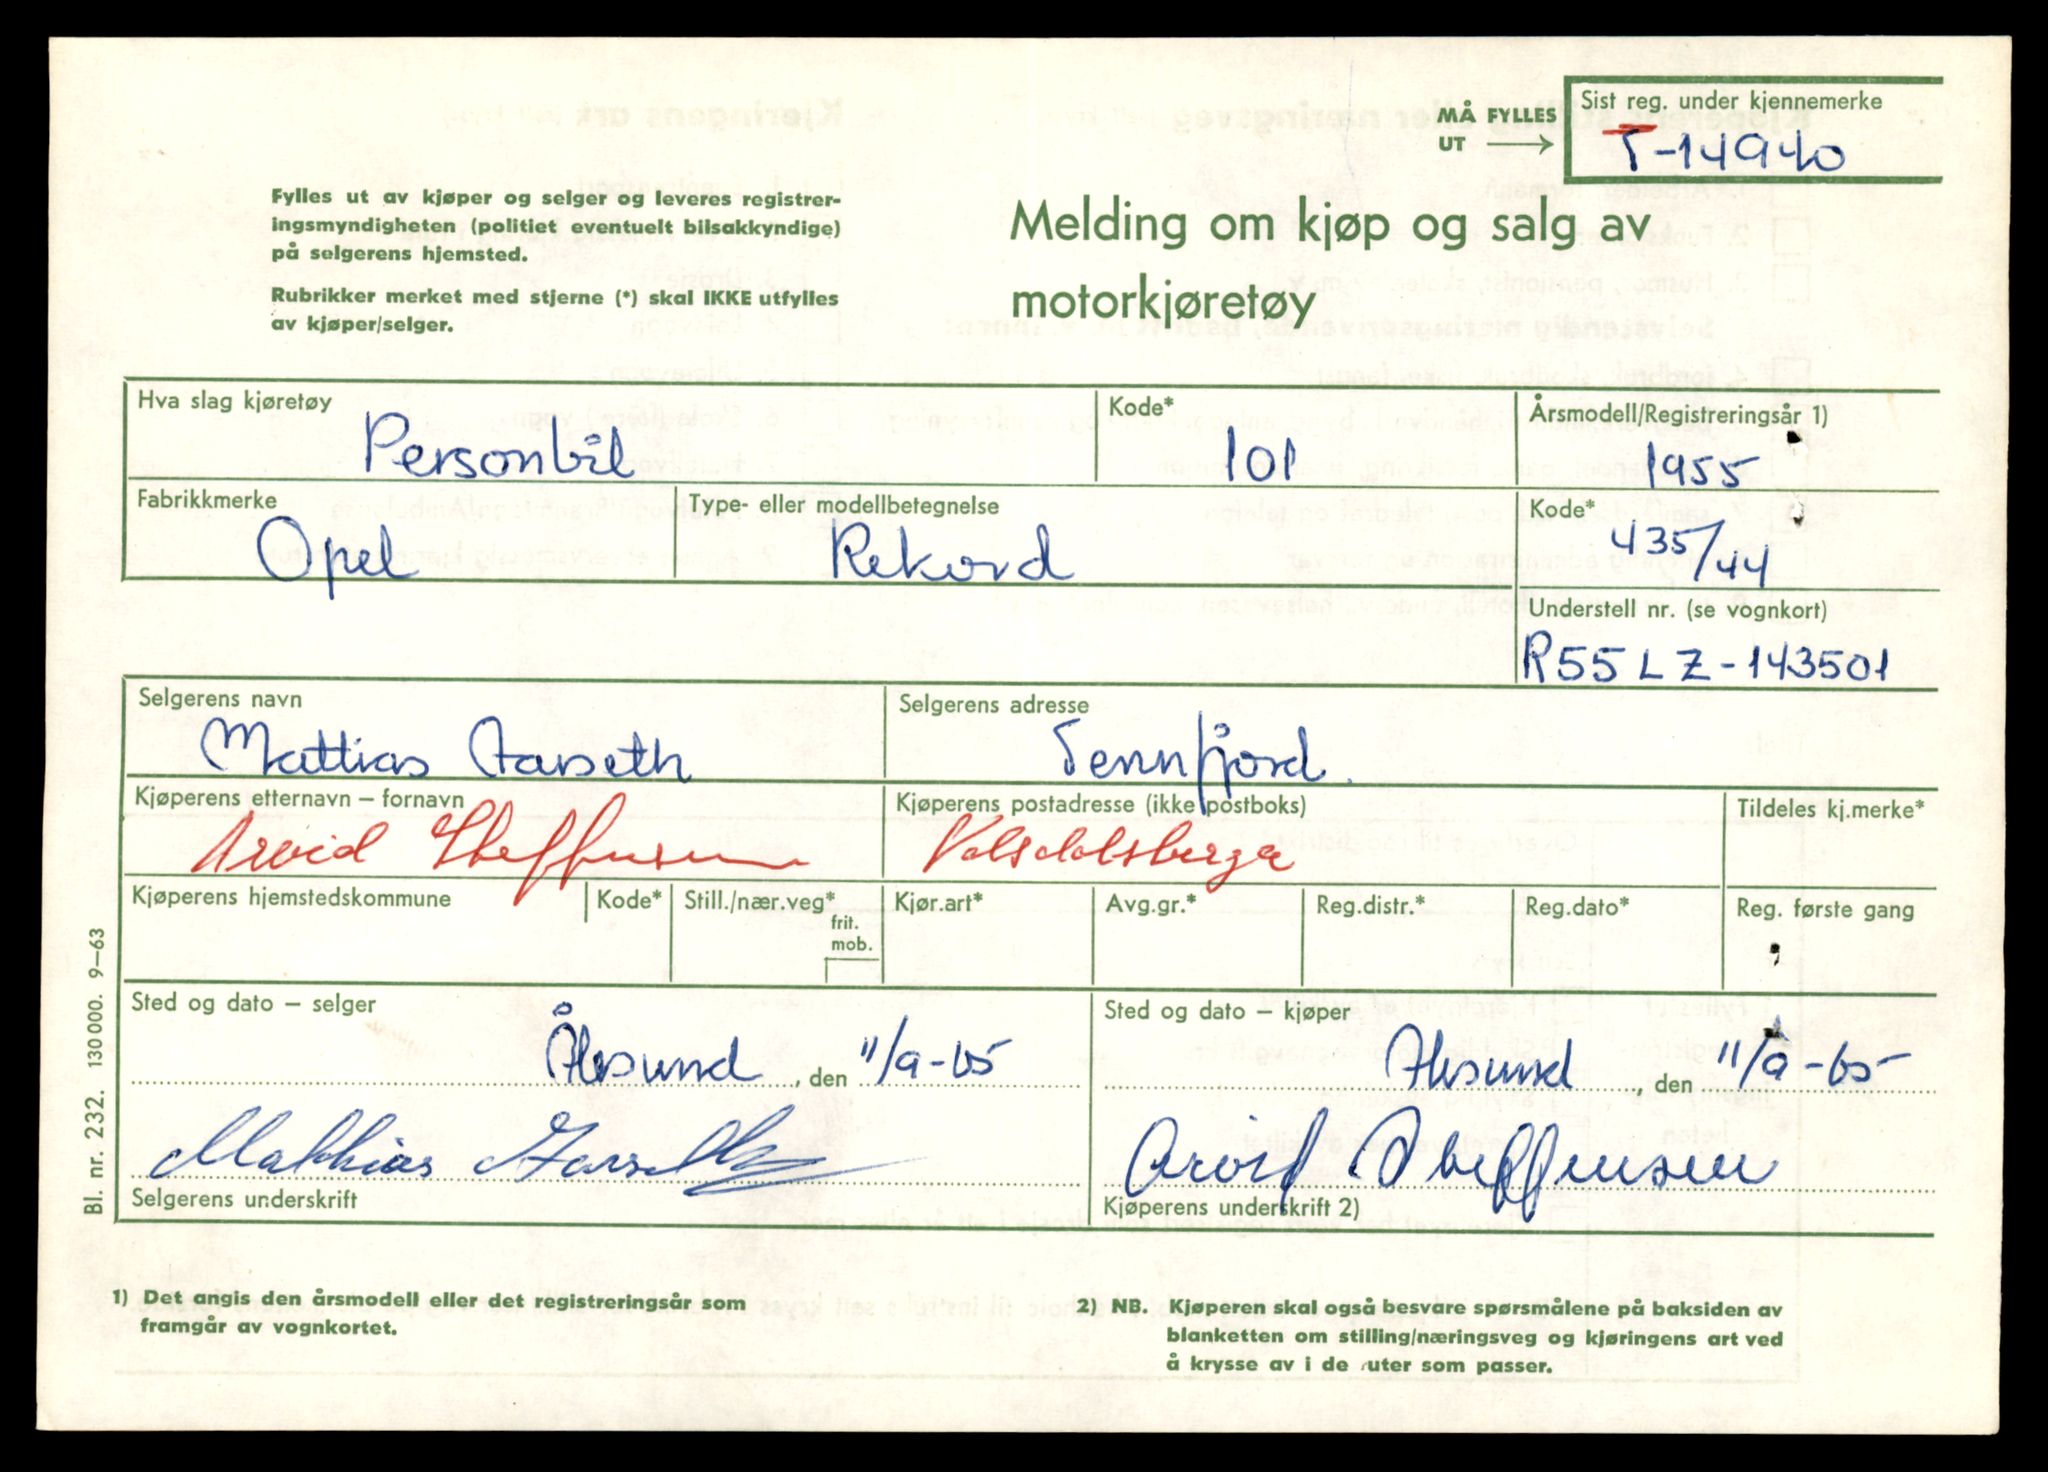 MÅ FYLLES
UT
Sist reg. under kjennemerke
T-14940
Fylles ut av kjøper og selger og leveres registrer-
ingsmyndigheten (politiet eventuelt bilsakkyndige)
på selgerens hjemsted.
Rubrikker merket med stjerne (*) skal IKKE utfylles
av kjøper/selger.
Melding om kjøp og salg av
motorkjøretøy
Hva slag kjøretøy
Personbil
Kode*
101
Årsmodell/Registreringsår 1)
1955
Fabrikkmerke
Opel
Type- eller modellbetegnelse
Rekord
Kode*
435/44
Understell nr. (se vognkort)
R55LZ-143501
Selgerens navn
Mattias Aarseth
Selgerens adresse
Tennfjord.
Kjøperens etternavn – fornavn
Arvid Steffensen
Kjøperens postadresse (ikke postboks)
Volsdalsberga
Tildeles kj.merke*
Kjøperens hjemstedskommune
Kode*
Still./nær.veg*
frit.
mob.
Kjør.art*
Avg.gr.*
Reg.distr.*
Reg.dato*
Reg. første gang
Sted og dato – selger
Ålesund, den 11/9-65
Mathias Aarseth
Selgerens underskrift
Sted og dato – kjøper
Ålesund, den 11/9-65
Arvid Steffensen
Kjøperens underskrift 2)
Bl. nr. 232. 130 000. 9–63
1) Det angis den årsmodell eller det registreringsår som
framgår av vognkortet.
2) NB. Kjøperen skal også besvare spørsmålene på baksiden av
blanketten om stilling/næringsveg og kjøringens art ved
å krysse av i de ruter som passer.